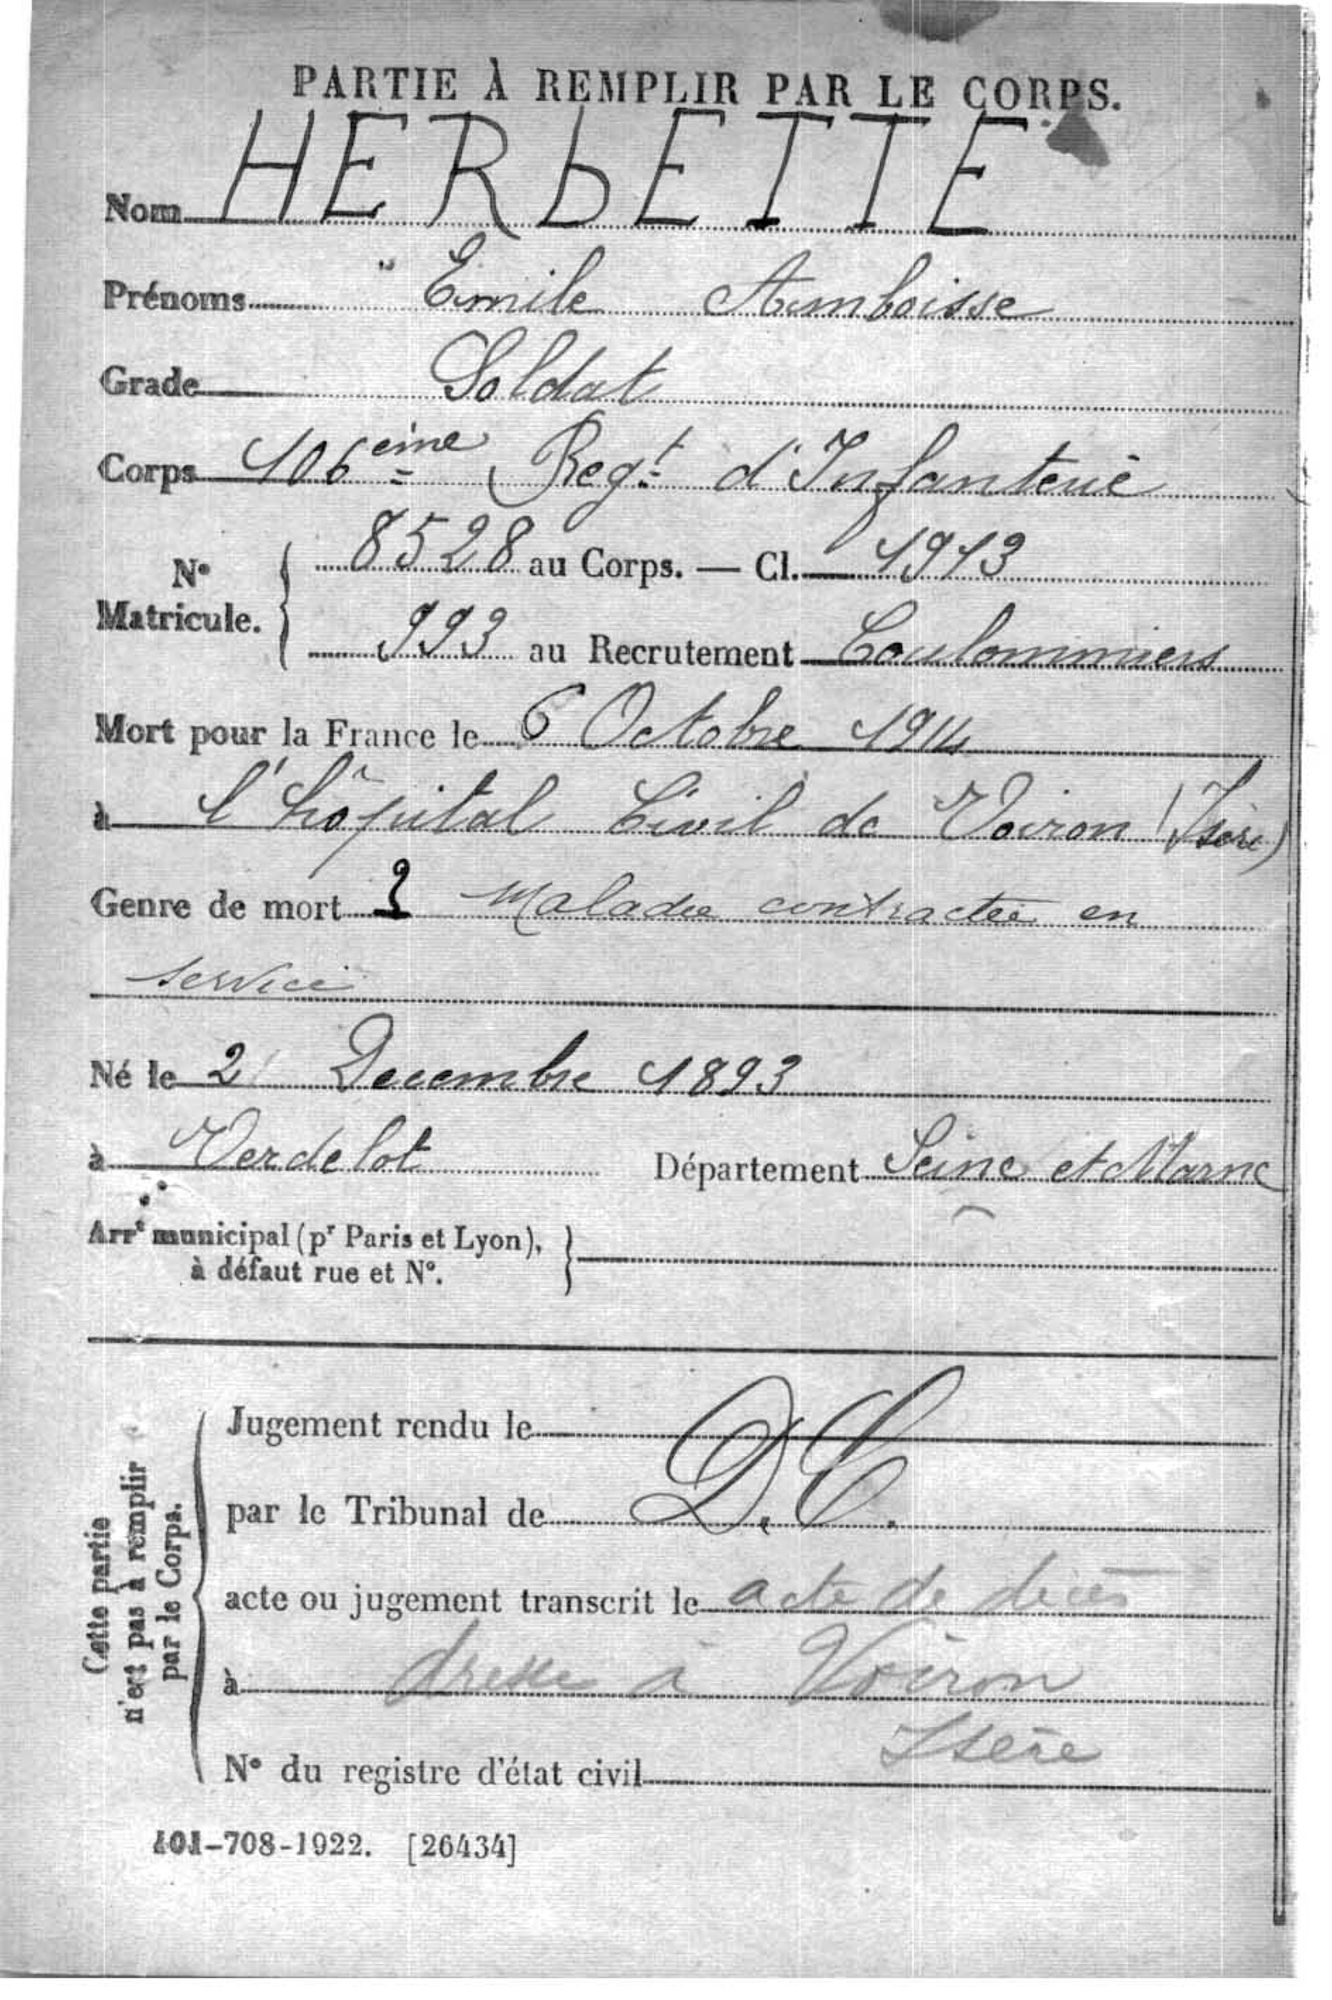 PARTIE À REMPLIR PAR LE CORPS.
Nom HERbETTE
Prénoms Emile Amboisse
Grade Soldat
Corps 106ème Regt d'Infanterie
No Matricule. { 8528 au Corps. — Cl. 1913
993 au Recrutement Coulommiers
Mort pour la France le 6 Octobre 1914
à l'hôpital Civil de Voiron (Isère)
Genre de mort Maladie contractée en
service
Né le 2 Decembre 1893
à Verdelot Département Seine et Marne
Arrt municipal (pr Paris et Lyon),
à défaut rue et No. }
Cette partie
n'est pas à remplir
par le Corps.
Jugement rendu le
par le Tribunal de D.C.
acte ou jugement transcrit le acte de décès
à dressé à Voiron
Isère
No du registre d'état civil
101-708-1922. [26434]